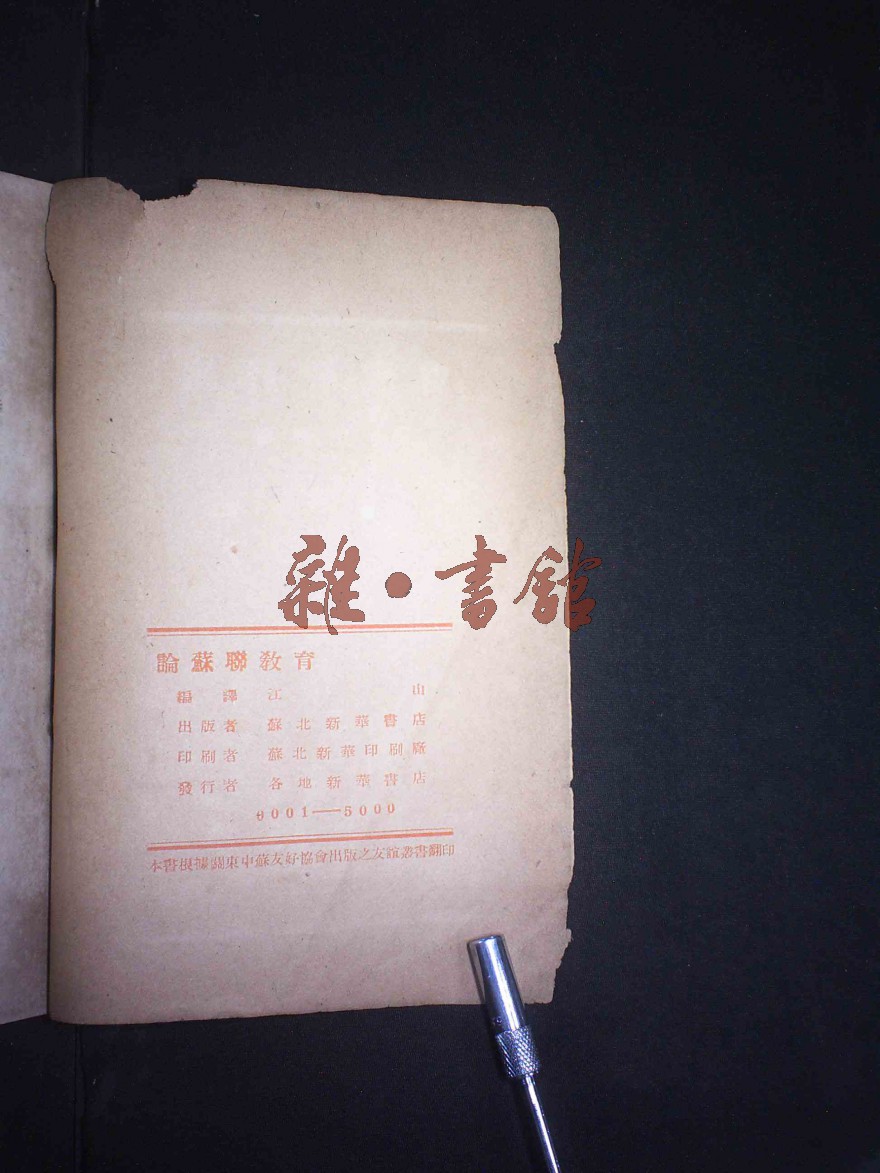 雜·書館
論蘇聯教育
編譯 江山
出版者 蘇北新華書店
印刷者 蘇北新華印刷廠
發行者 各地新華書店
0001——5000
本書根據關東中蘇友好協會出版之友誼叢書翻印